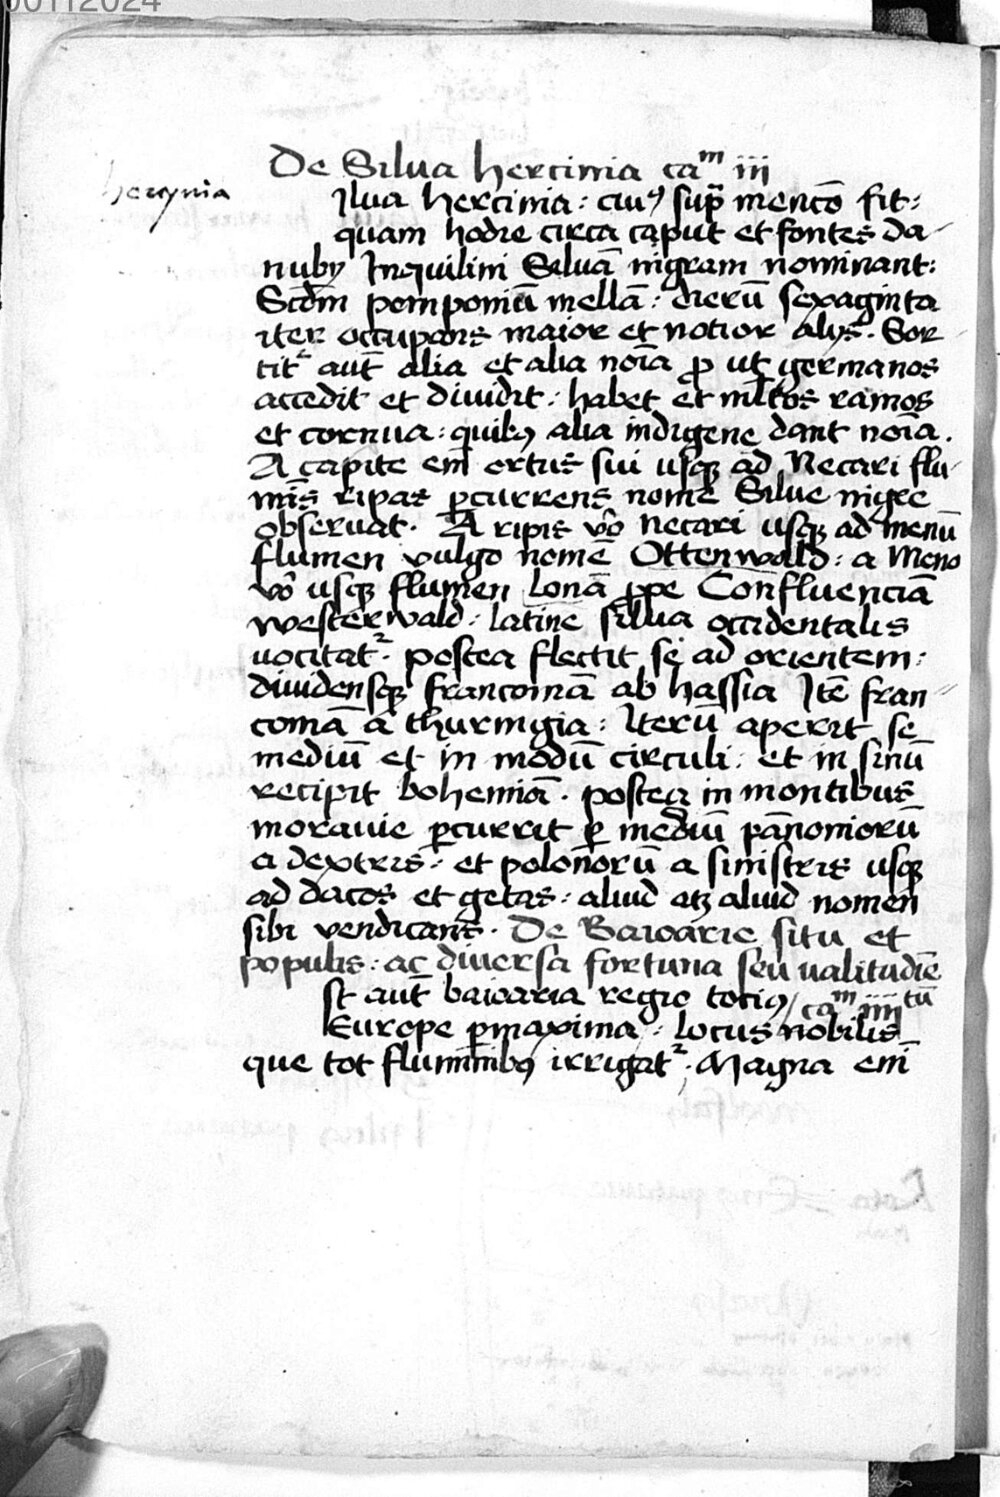 00112024
De Silua hercinia ca͞m iij
hercynia
Ilua hercinia: cuiꝰ sup̄ mencō fit:
quam hodie circa caput et fontes da-
nubÿ Inquilini Siluā nigram nominant:
Scd̄m pomponiū mellā: dierū sexaginta
iter occupans maior et notior alÿs. Sor-
titᷣ aut̄ alia et alia noīa ꝓ ut germanos
accedit et diuidit: habet et ml̄tos ramos
et cornua: quibꝰ alia indigene dant noīa.
A capite em̄ ortus sui usqꝫ ad Necari flu-
mīs ripas ꝑcurrens nomē Silue nigre
obseruat. A ripis vō necari usqꝫ ad menū
flumen vulgo nomē Ottenwald: a Meno
vō usqꝫ flumen Lonā ꝓpe Confluenciā
westerwald: latine silua occidentalis
uocitatᷣ. postea flectit se ad orientem:
diuidensqꝫ franconiā ab hassia Itē fran-
coniā a thuringia: Iterū aperit se
mediū et in modū circuli: et in sinū
recipit bohemiā. postea in montibus
morauie ꝑcurrit ꝑ mediū pānoniorū
a dextris: et polonorū a sinistris usqꝫ
ad dacos et getas: aliud atqꝫ aliud nomen
sibi vendicans. De Baioarie situ et
populis: ac diuersa fortuna seu ualitudīe
st aut̄ baioaria regio totiꝰ / ca͞m iiiitū
Europe ꝑmaxima: locus nobilis
que tot fluminibꝰ irrigatᷣ. Magna em̄